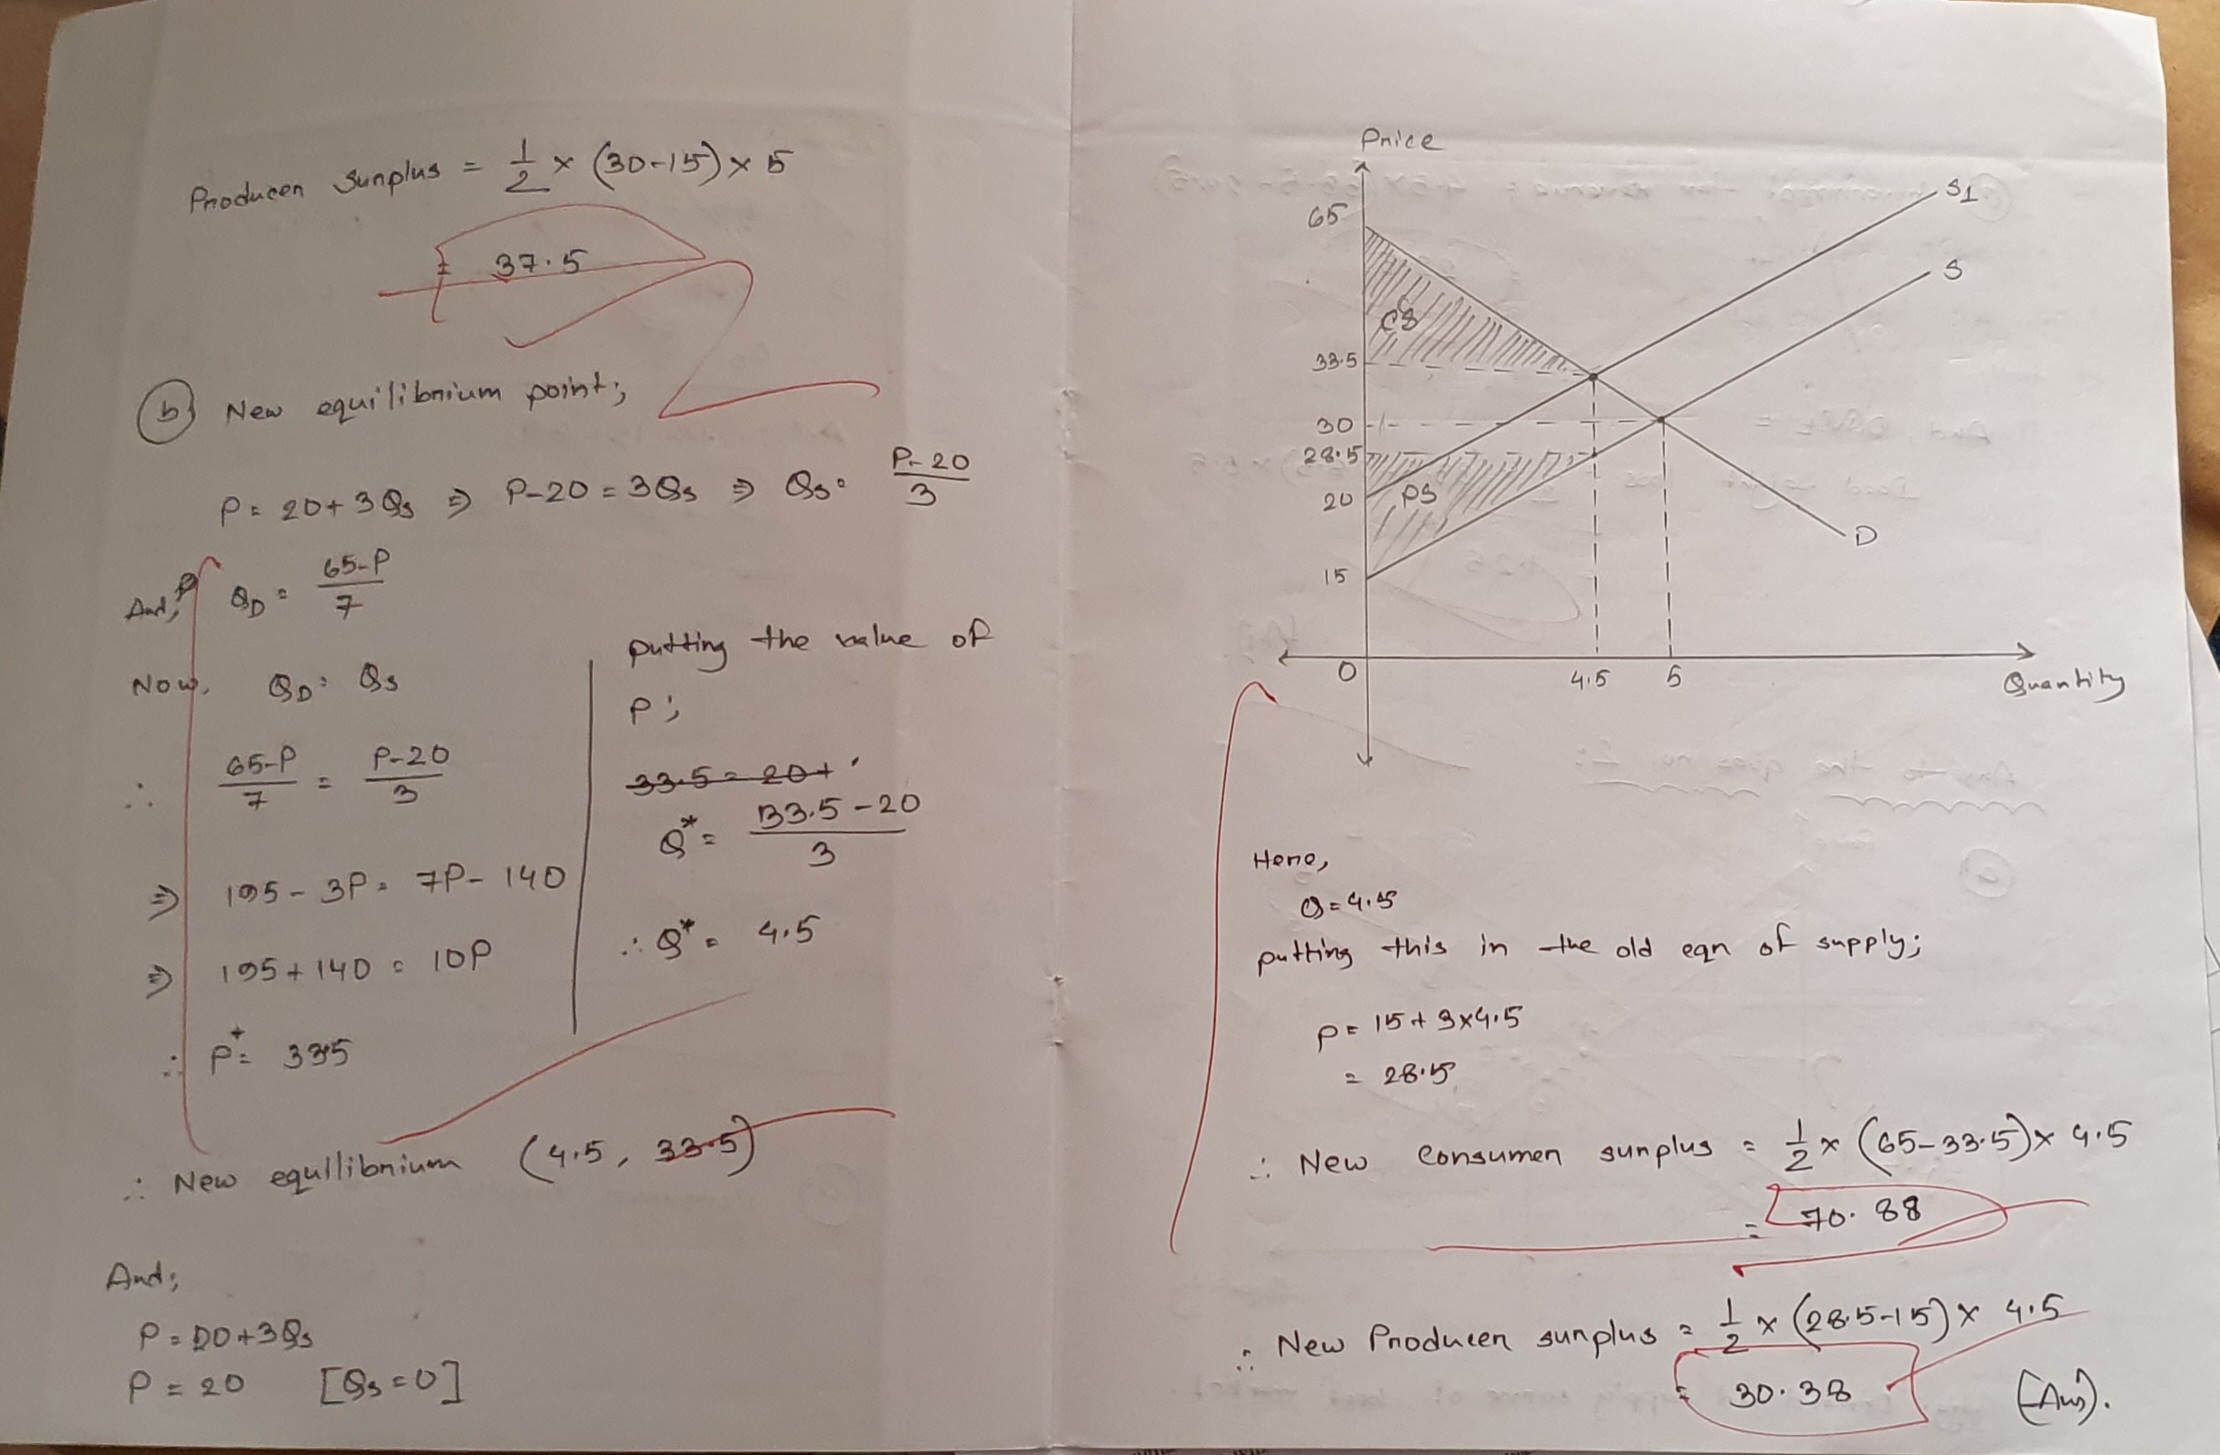 Producer Surplus = 1/2 × (30-15) × 5
= 37.5
(b) New equilibrium point;
P = 20 + 3Qs ⇒ P-20 = 3Qs ⇒ Qs = P-20/3
And, QD = 65-P/7
Now, QD = Qs
∴ 65-P/7 = P-20/3
⇒ 195 - 3P = 7P - 140
⇒ 195 + 140 = 10P
∴ P* = 33.5
putting the value of
P;
33.5 = 20 +
Q* = 33.5 - 20/3
∴ Q* = 4.5
∴ New equilibrium (4.5, 33.5)
And;
P = 20 + 3Qs
P = 20 [Qs = 0]
Price
65
S1
S
CS
33.5
30
28.5
20
PS
15
D
0
4.5
5
Quantity
Here,
Q = 4.5
putting this in the old eqn of supply;
P = 15 + 3×4.5
= 28.5
∴ New Consumer surplus = 1/2 × (65-33.5) × 4.5
= 70.88
∴ New Producer surplus = 1/2 × (28.5-15) × 4.5
= 30.38
(Ans).